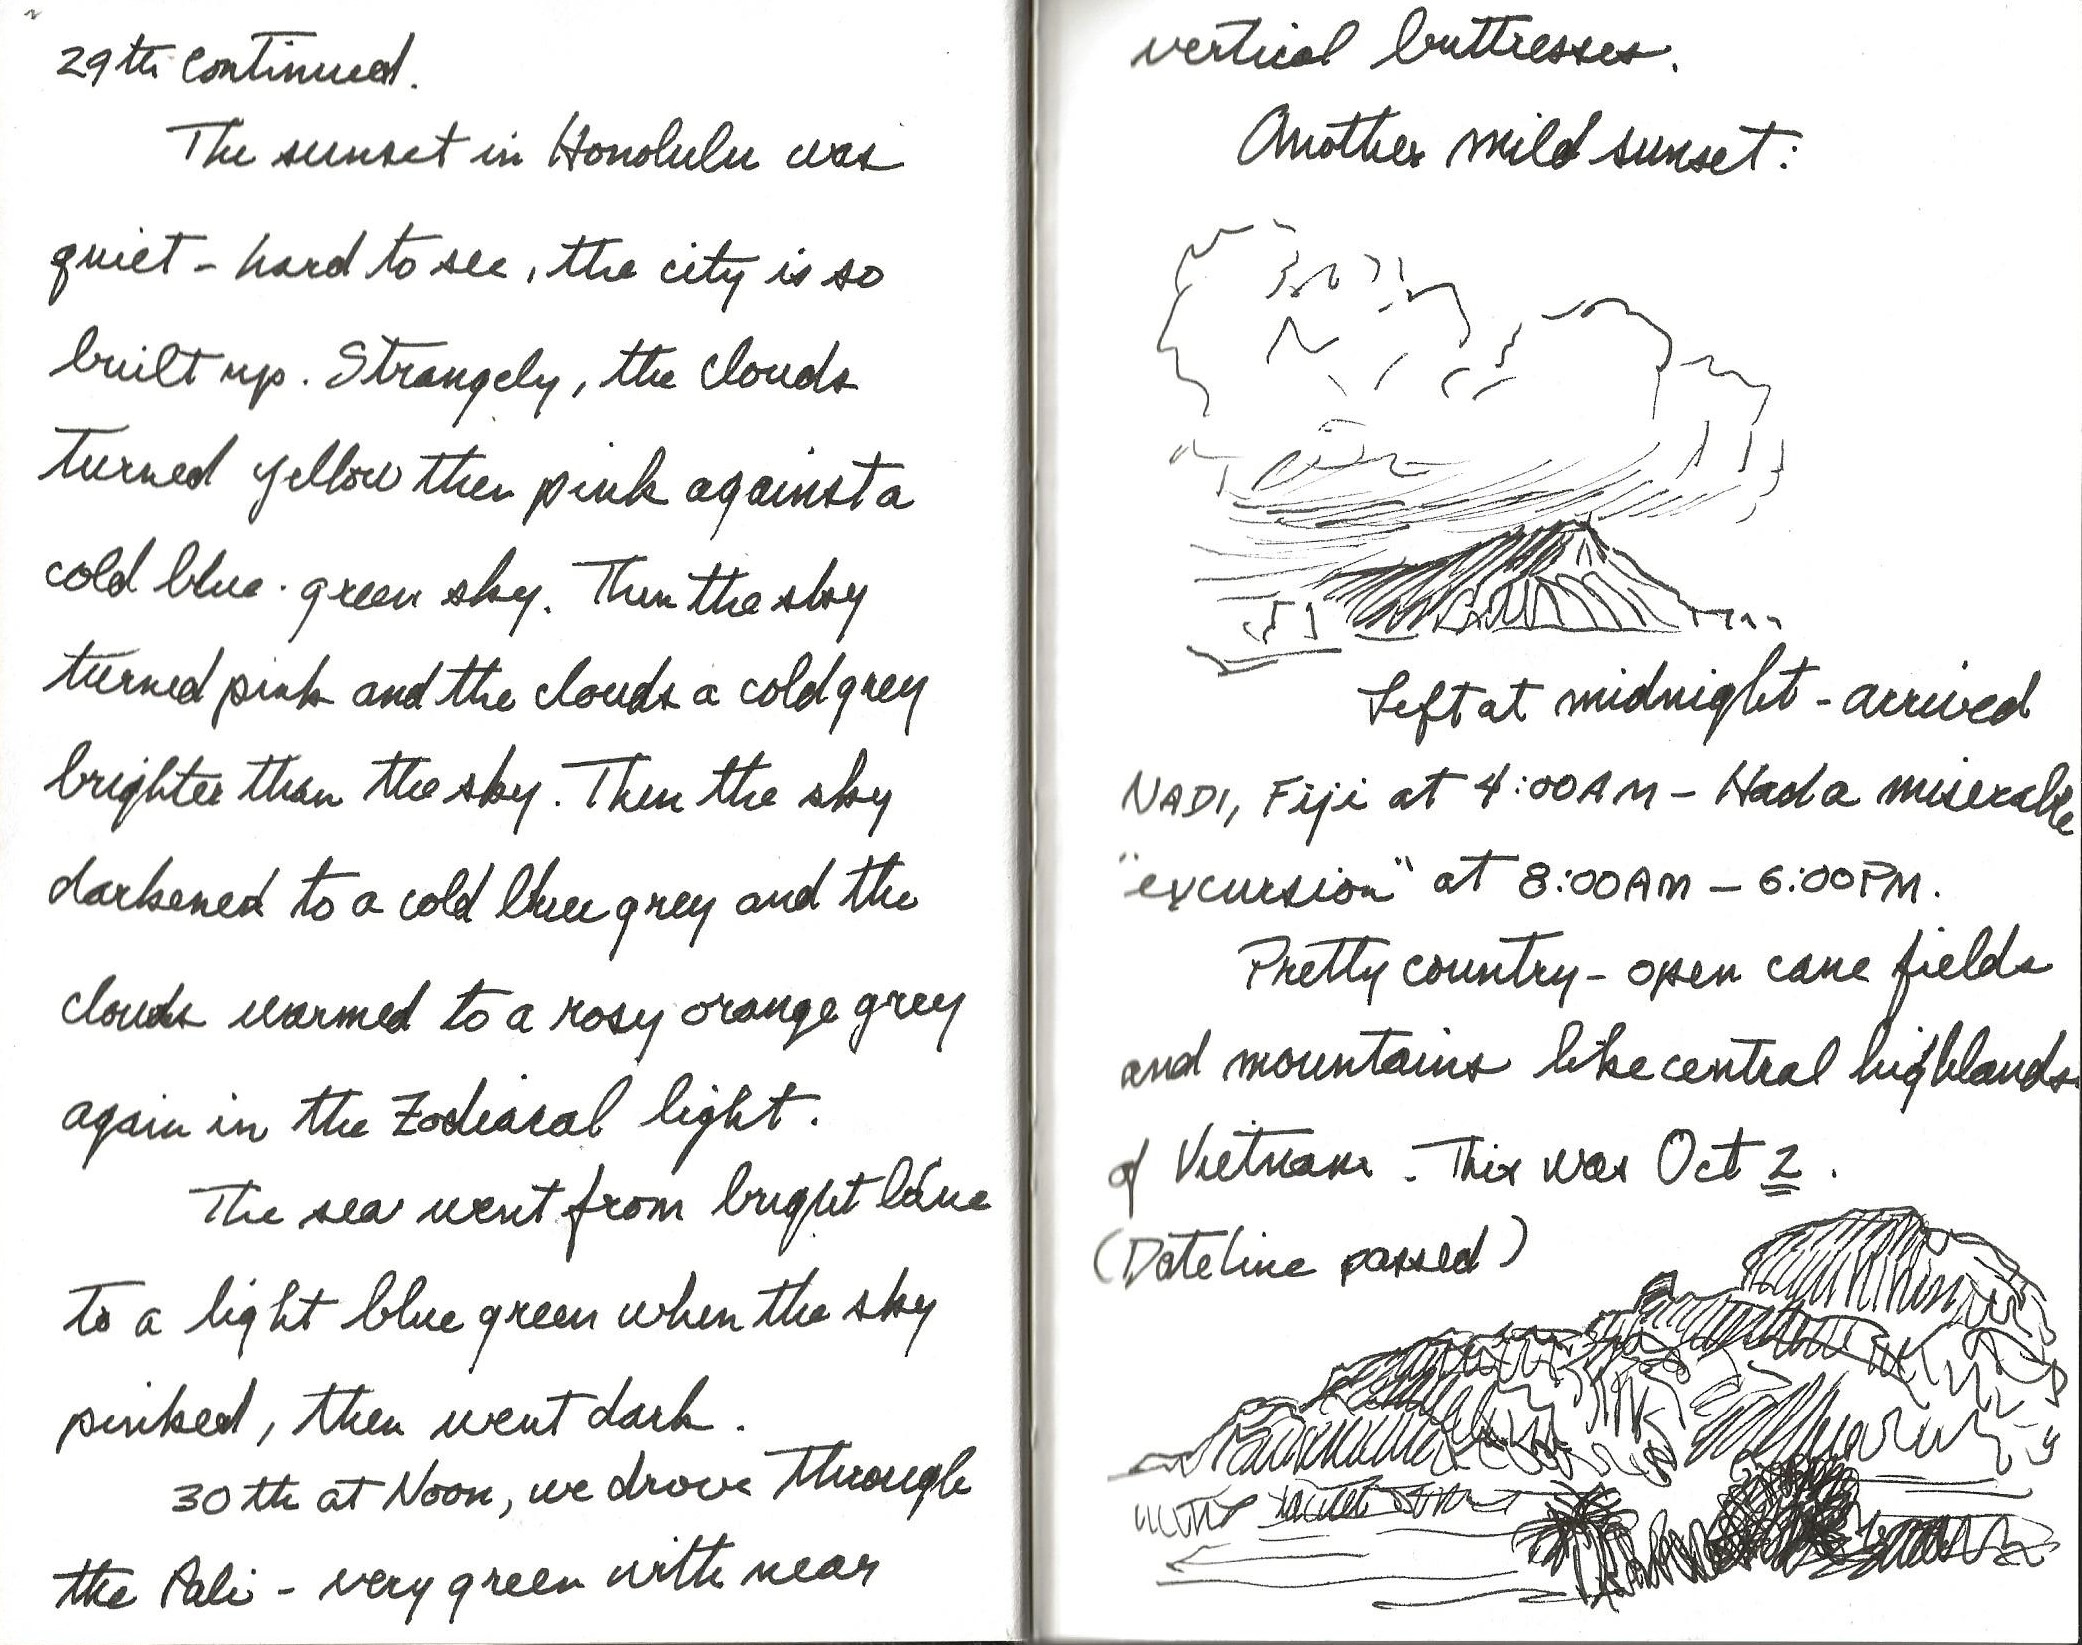 29th continued.
The sunset in Honolulu was
quiet - hard to see, the city is so
built up. Strangely, the clouds
turned yellow then pink against a
cold blue-green sky. Then the sky
turned pink and the clouds a cold grey
brighter than the sky. Then the sky
darkened to a cold blue grey and the
clouds warmed to a rosy orange grey
again in the Zodiacal light.
The sea went from bright blue
to a light blue green when the sky
pinked, then went dark.
30th at Noon, we drove through
the Pali - very green with near
vertical buttresses.
Another mild sunset:
Left at midnight - arrived
NADI, Fiji at 4:00AM - Had a miserable
"excursion" at 8:00AM - 6:00PM.
Pretty country - open cane fields
and mountains like central highlands
of Vietnam. This was Oct 2.
(Dateline passed)